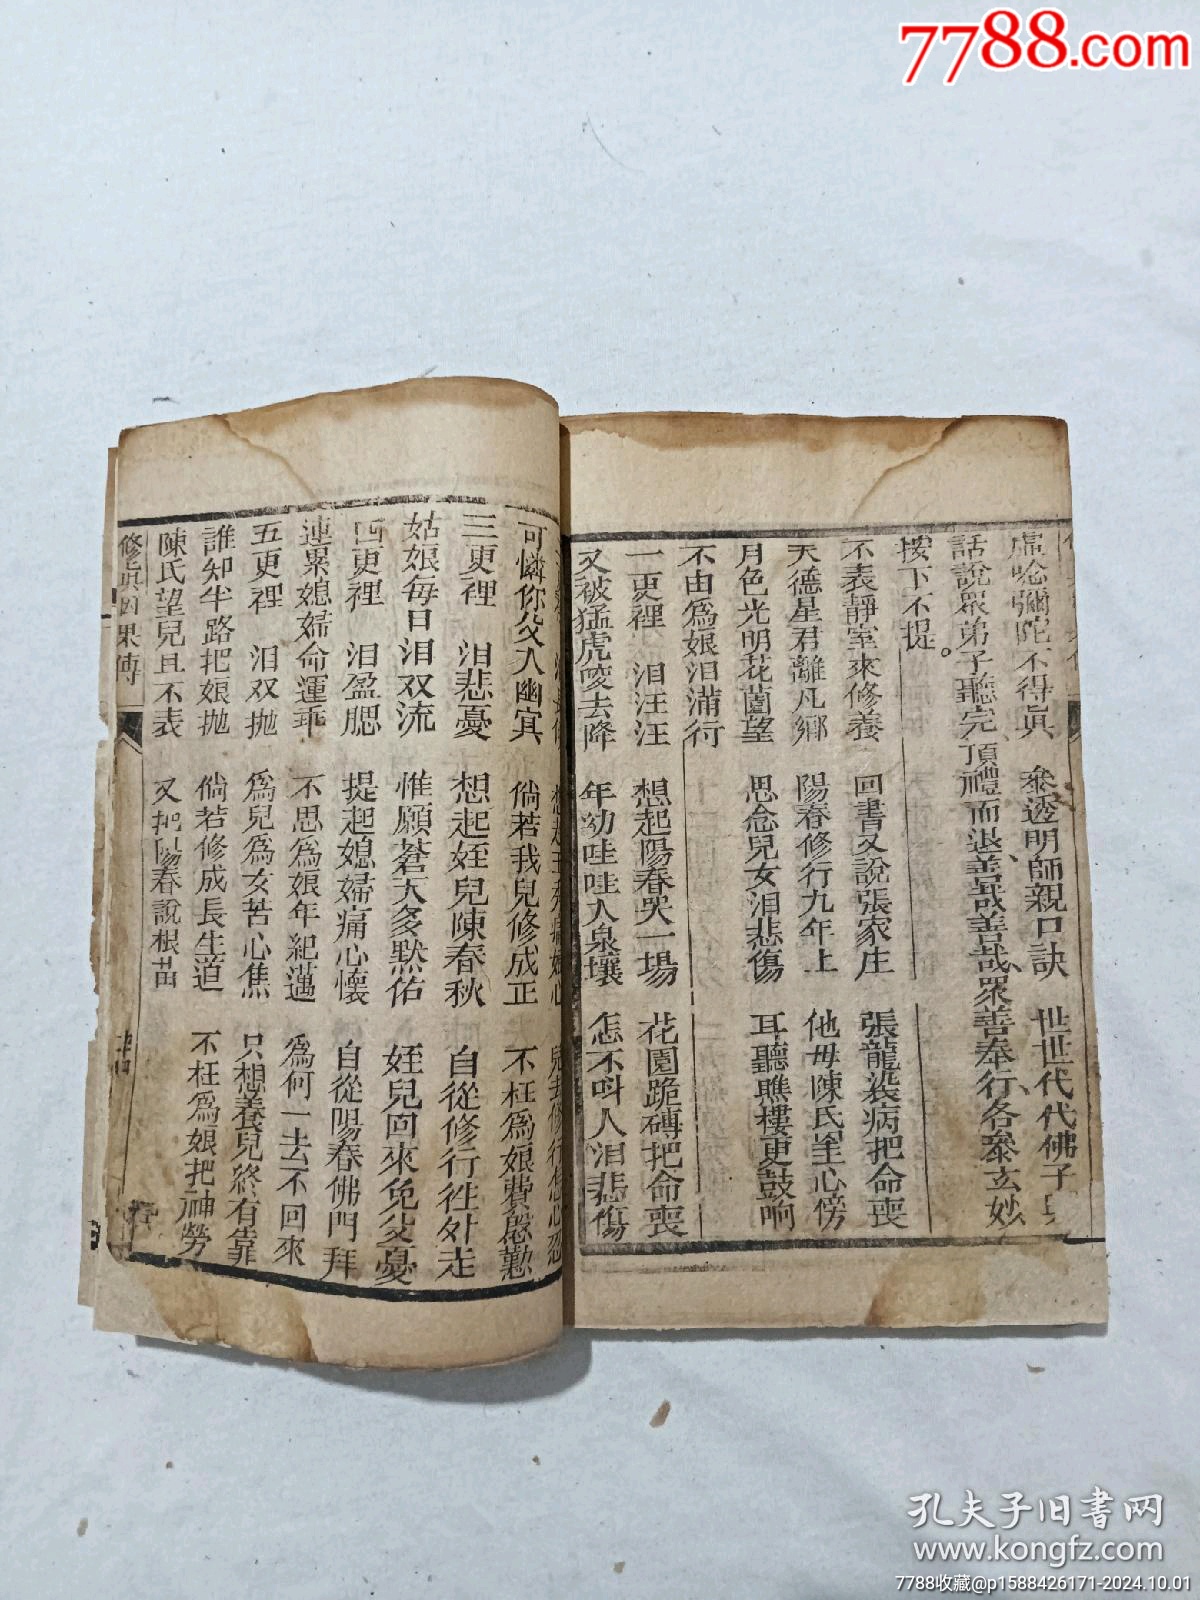 7788.com
虛唸彌陀不得眞　叅透明師親口訣　世世代代佛子
話說眾弟子聽完頂禮而退善哉善哉眾善奉行各叅玄妙
按下不提。
不表靜室來修養　回書又說張家庄　張龍染病把命喪
天德星君離凡鄉　陽春修行九年上　他母陳氏羍心傍
月色光明花園望　思念兒女泪悲傷　耳聽瞧樓更鼓响
不由爲娘泪滿行
一更裡　泪汪汪　想起陽春哭一場　花園跪磚把命喪
又被猛虎咬去降　年幼哇哇入泉壤　怎不呌人泪悲傷
可憐你父入幽冥　倘若我兒修成正　不枉爲娘費慇懃
三更裡　泪悲憂　想起姪兒陳春秋　自從修行徃外走
姑娘每日泪双流　惟願蒼天多默佑　姪兒回來免父憂
四更裡　泪盈腮　提起媳婦痛心懷　自從陽春佛門拜
連累媳婦命運乖　不思爲娘年紀邁　爲何一去不回來
五更裡　泪双抛　爲兒爲女苦心焦　只想養兒終有靠
誰知半路把娘抛　倘若修成長生道　不枉爲娘把神勞
陳氏望兒且不表　又把陽春說根苗
修眞因果傳
孔夫子旧书网
www.kongfz.com
7788收藏@p1588426171-2024.10.01